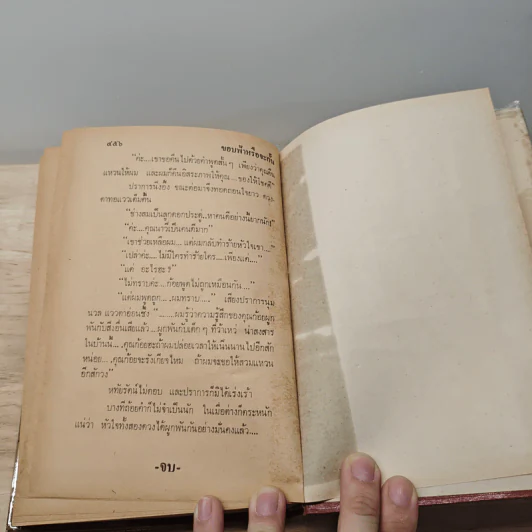 ๔๕๖ ขอบฟ้าหรือจะกั้น
"ค่ะ....เขาขอคืนไปด้วยคำพูดสั้นๆ เพียงว่าคุณคืน
แหวนให้ผม และผมก็คืนอิสระภาพให้คุณ....ของให้โชคดี"
ปราการนิ่งอึ้ง ขณะต่อมาจึงทอดถอนใจยาว ดวง
ตาทอแววเต็มตื้น
"ช่างสมเป็นลูกดอกประดู่....หาคนดีอย่างนี้ยากนัก"
"ค่ะ....คุณนาวีเป็นคนดีมาก"
"เขาช่วยเหลือผม....แต่ผมกลับทำร้ายหัวใจเขา...."
"เปล่าค่ะ....ไม่มีใครทำร้ายใคร....เพียงแต่...."
"แต่ อะไรฮะ?"
"ไม่ทราบค่ะ....ก้อยพูดไม่ถูกเหมือนกัน...."
"แต่ผมพูดถูก....ผมทราบ....." เสียงปราการนุ่ม
นวล แววตาอ่อนซึ้ง ".......ผมรู้ว่าความรู้สึกของคุณก้อยผูก
พันกับสิ่งอื่นเสียแล้ว....ผูกพันกับเด็กๆ ที่ว้าเหว่ น่าสงสาร
ในบ้านนั้น....คุณก้อยฮะถ้าผมปล่อยเวลาให้เนิ่นนานไปอีกสัก
หน่อย....คุณก้อยจะรังเกียจไหม ถ้าผมจะขอให้สวมแหวน
อีกสักวง"
หทัยรัตน์ไม่ตอบ และปราการก็มิได้เร่งเร้า
บางทีถ้อยคำก็ไม่จำเป็นนัก ในเมื่อต่างก็ตระหนัก
แน่ว่า หัวใจทั้งสองดวงได้ผูกพันกันอย่างมั่นคงแล้ว....
-จบ-